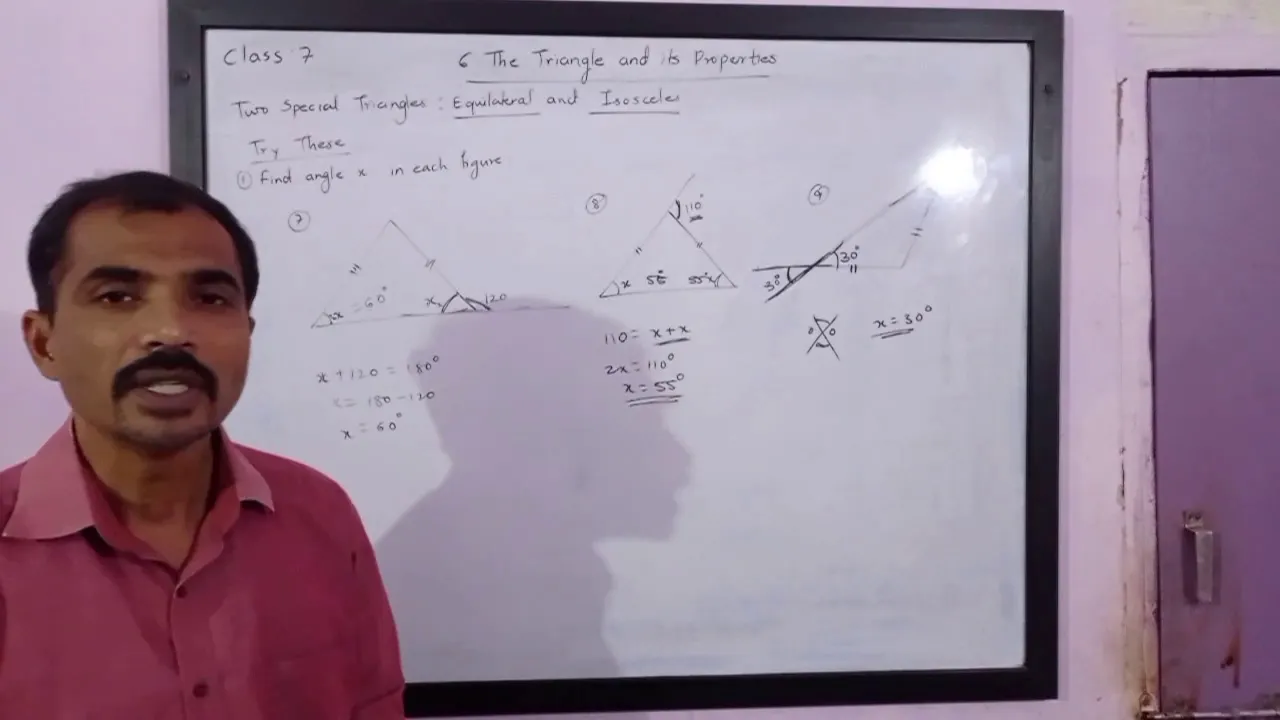 Class 7
6 The Triangle and its Properties
Two Special Triangles : Equilateral and Isosceles
Try These
① Find angle x in each figure
⑦
x = 60°
x
120
x + 120 = 180°
x = 180 - 120
x = 60°
⑧
110°
x 55°
55° x
110 = x + x
2x = 110°
x = 55°
⑨
30°
30°
x = 30°